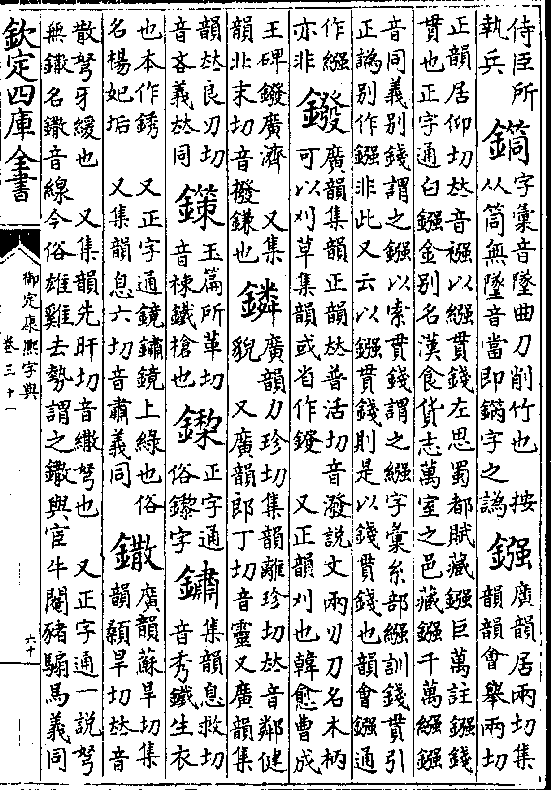 侍臣所
執兵
字彙音墜曲刀削竹也 按
从筒無墜音當即鏋字之譌
鏹
廣韻居兩切集
韻韻會舉兩切
正韻居仰切𠀤音襁以繦貫錢左思蜀都賦藏鏹巨萬註鏹錢
貫也正字通白鏹金别名漢食貨志萬室之邑藏鏹千萬繦鏹
音同義别錢謂之鏹以索貫錢謂之繦字彙糸部繦訓錢貫引
正譌别作鏹非此又云以鏹貫錢則是以錢貫錢也韻會鏹通
作繦
亦非
鏺
廣韻集韻正韻𠀤普活切音潑說文兩刃刀名木柄
可以刈草集韻或省作鍐 又正韻刈也韓愈曹成
王碑鏺廣濟 又集
韻北末切音撥鎌也
鏻
廣韻力珍切集韻離珍切𠀤音鄰健
貌 又廣韻郎丁切音靈又廣韻集
韻𠀤良刃切
音吝義𠀤同
玉篇所革切
音栜鐵槍也
鏫
正字通
俗鑗字
鏽
集韻息救切
音秀鐵生衣
也本作銹 又正字通鏡鏽鏡上綠也俗
名楊妃垢 又集韻息六切音肅義同
鏾
廣韻蘇旱切集
韻顙旱切𠀤音
散弩牙緩也 又集韻先旰切音繖弩也 又正字通一說弩
無鏾名鏾音線今俗雄雞去勢謂之鏾與宦牛閹豬騸馬義同
欽定四庫全書
御定康熙字典
卷三十一
六十